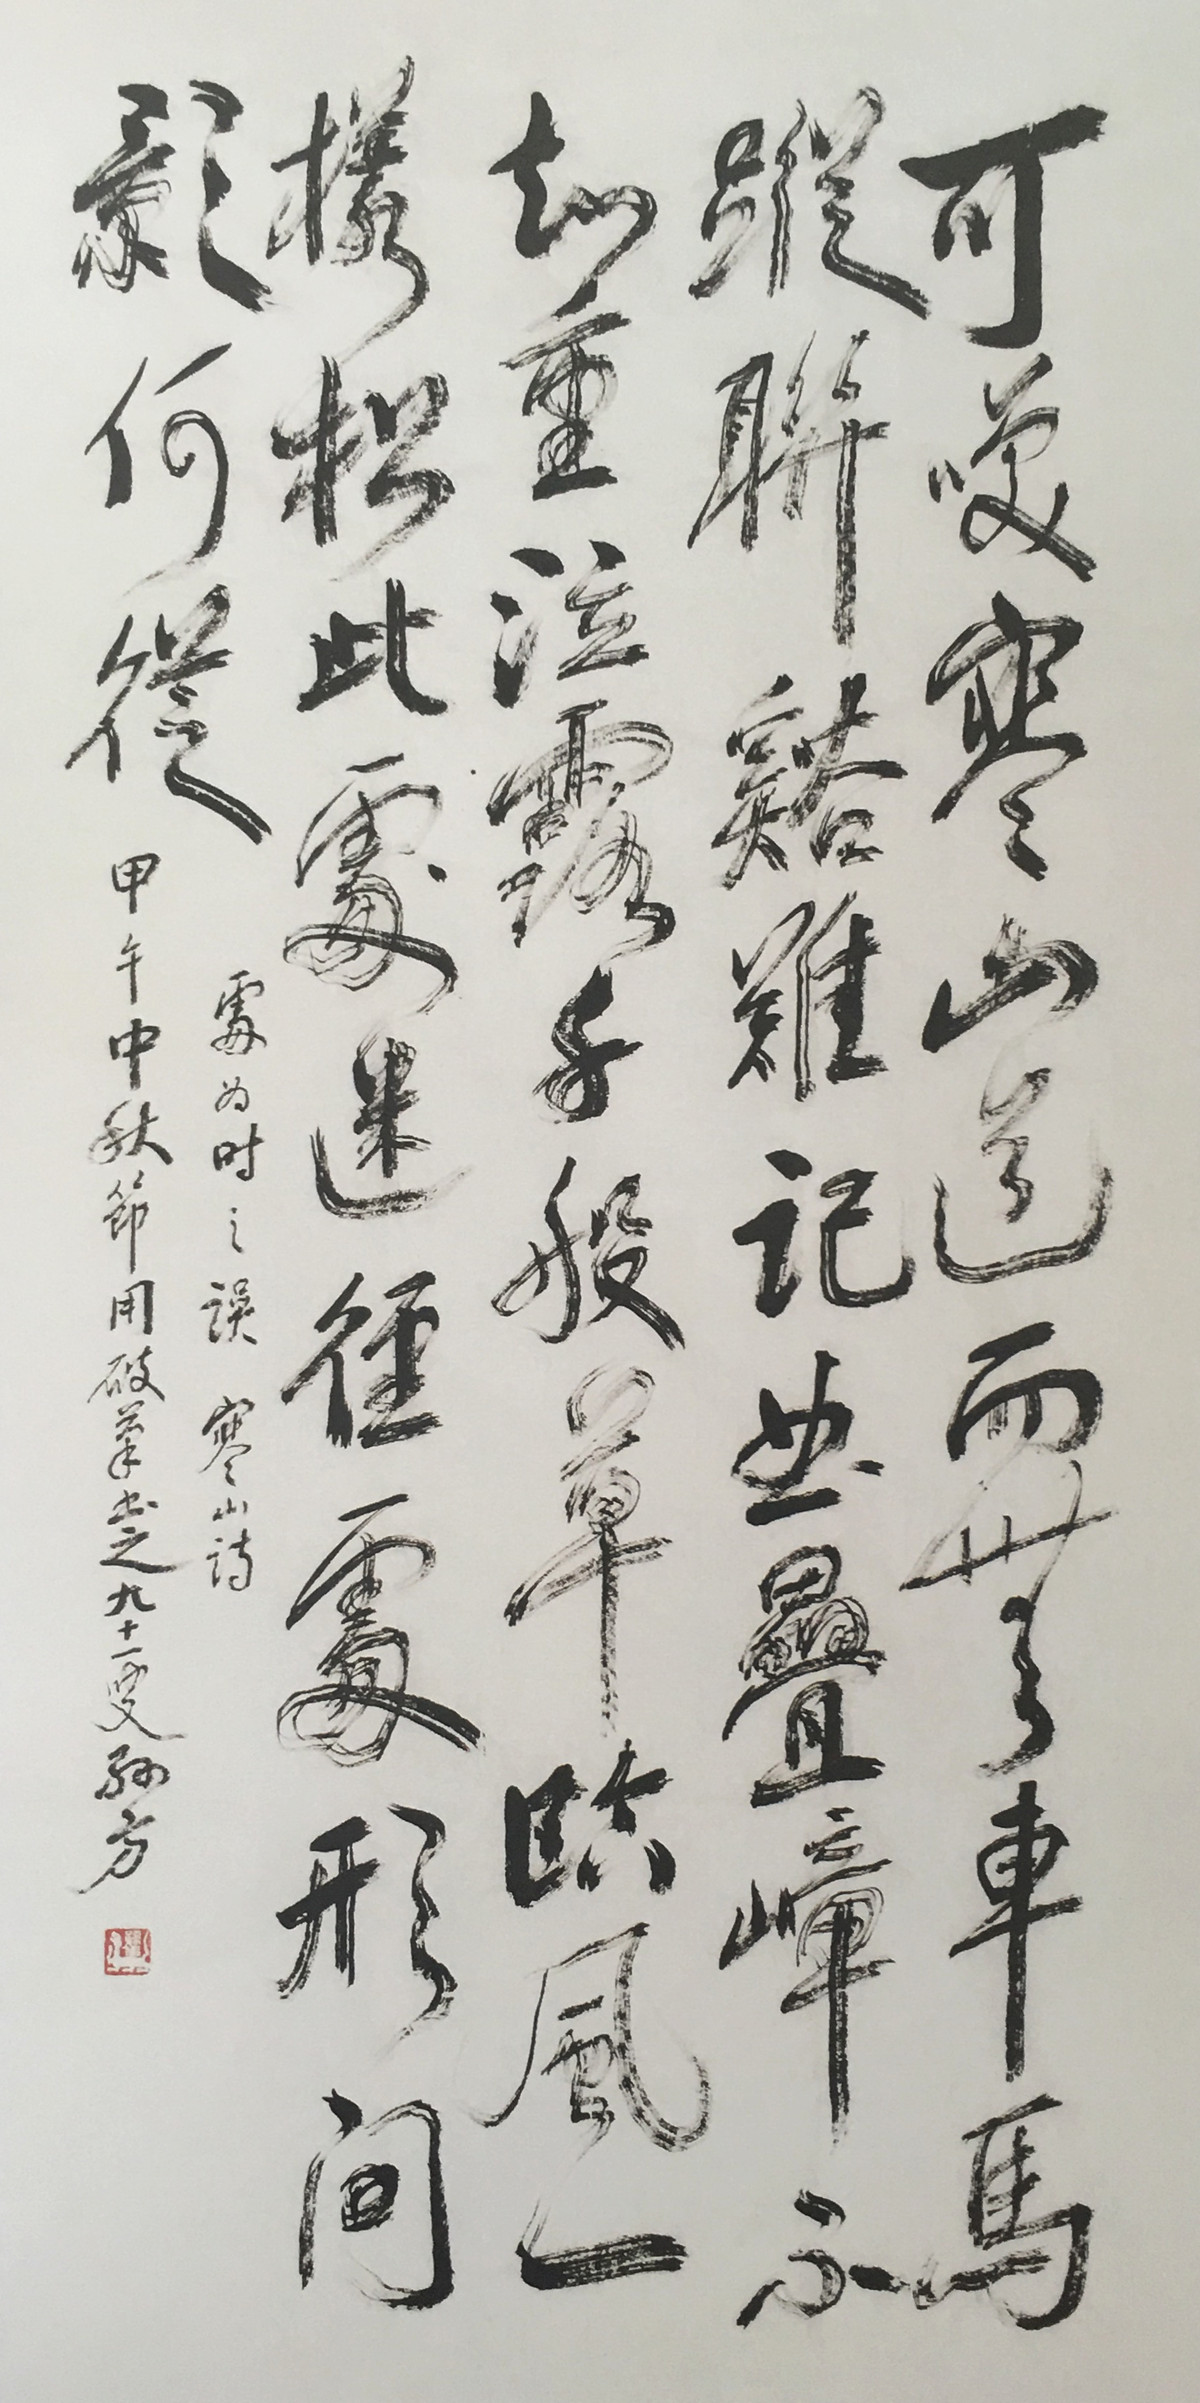 可咲寒山道而無車馬
蹤聯谿難記曲疊嶂不
知重泣露千般草臨風一
樣松此處迷徑處形問
影何從
處为时之誤 寒山詩
甲午中秋節用破筆書之九十一叟孫方